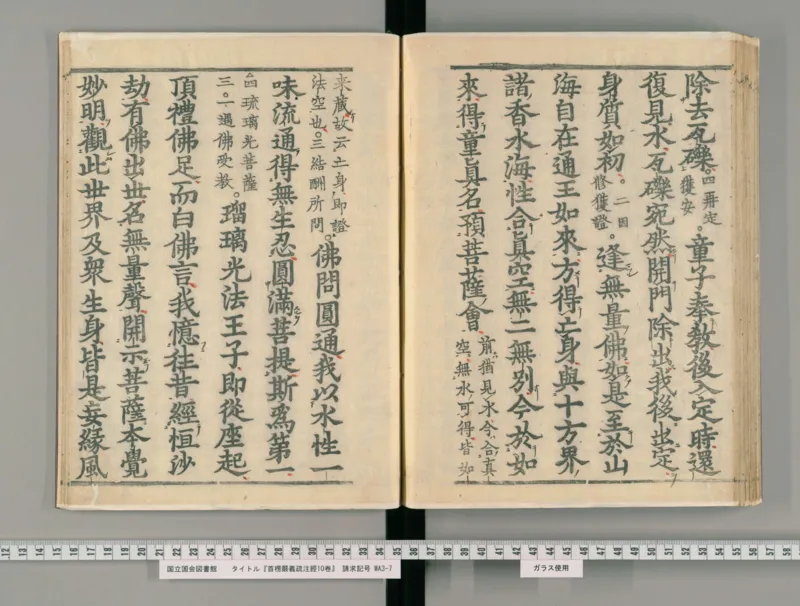 除去瓦礫。四再定獲安。童子奉教後入定時還
復見水瓦礫宛然開門除出我後出定
身質如初。二因獲證。逢無量佛如是至於山
海自在通王如來方得亡身與十方界
諸香水海性合眞空無二無別今於如
來得童眞名預菩薩會前猶見水今合真空無水可得皆如
來藏故云亡身即證法空也。三結酬所問。佛問圓通我以水性一
味流通得無生忍圓滿菩提斯爲第一
四琉璃光菩薩三。一遇佛受教。瑠璃光法王子即從座起
頂禮佛足而白佛言我憶往昔經恒沙
劫有佛出世名無量聲開示菩薩本覺
妙明觀此世界及衆生身皆是妄緣風
12 13 14 15 16 17 18 19 20 21 22 23 24 25 26 27 28 29 30 31 32 33 34 35 36 37 38 39 40 41 42 43 44 45 46 47 48 49 50 51 52 53 54 55 56 57 58
国立国会図書館 タイトル『首楞厳義疏注経10巻』 請求記号 WA3-7
ガラス使用